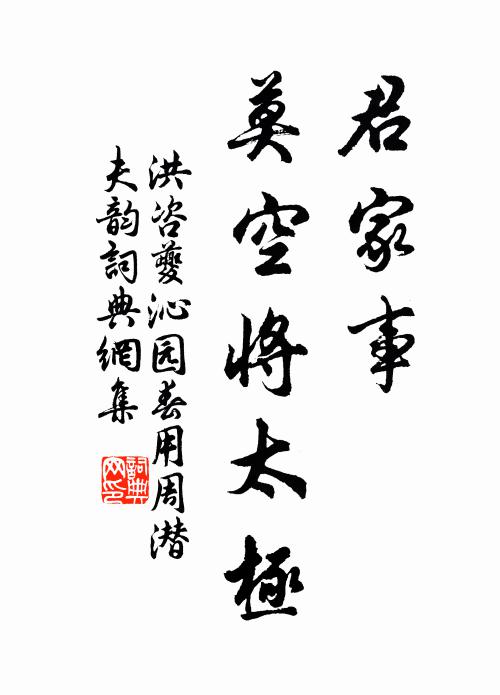 君家事
莫空将太極
洪咨夔沁园春用周潜
夫韵詞典網集
詞典网印